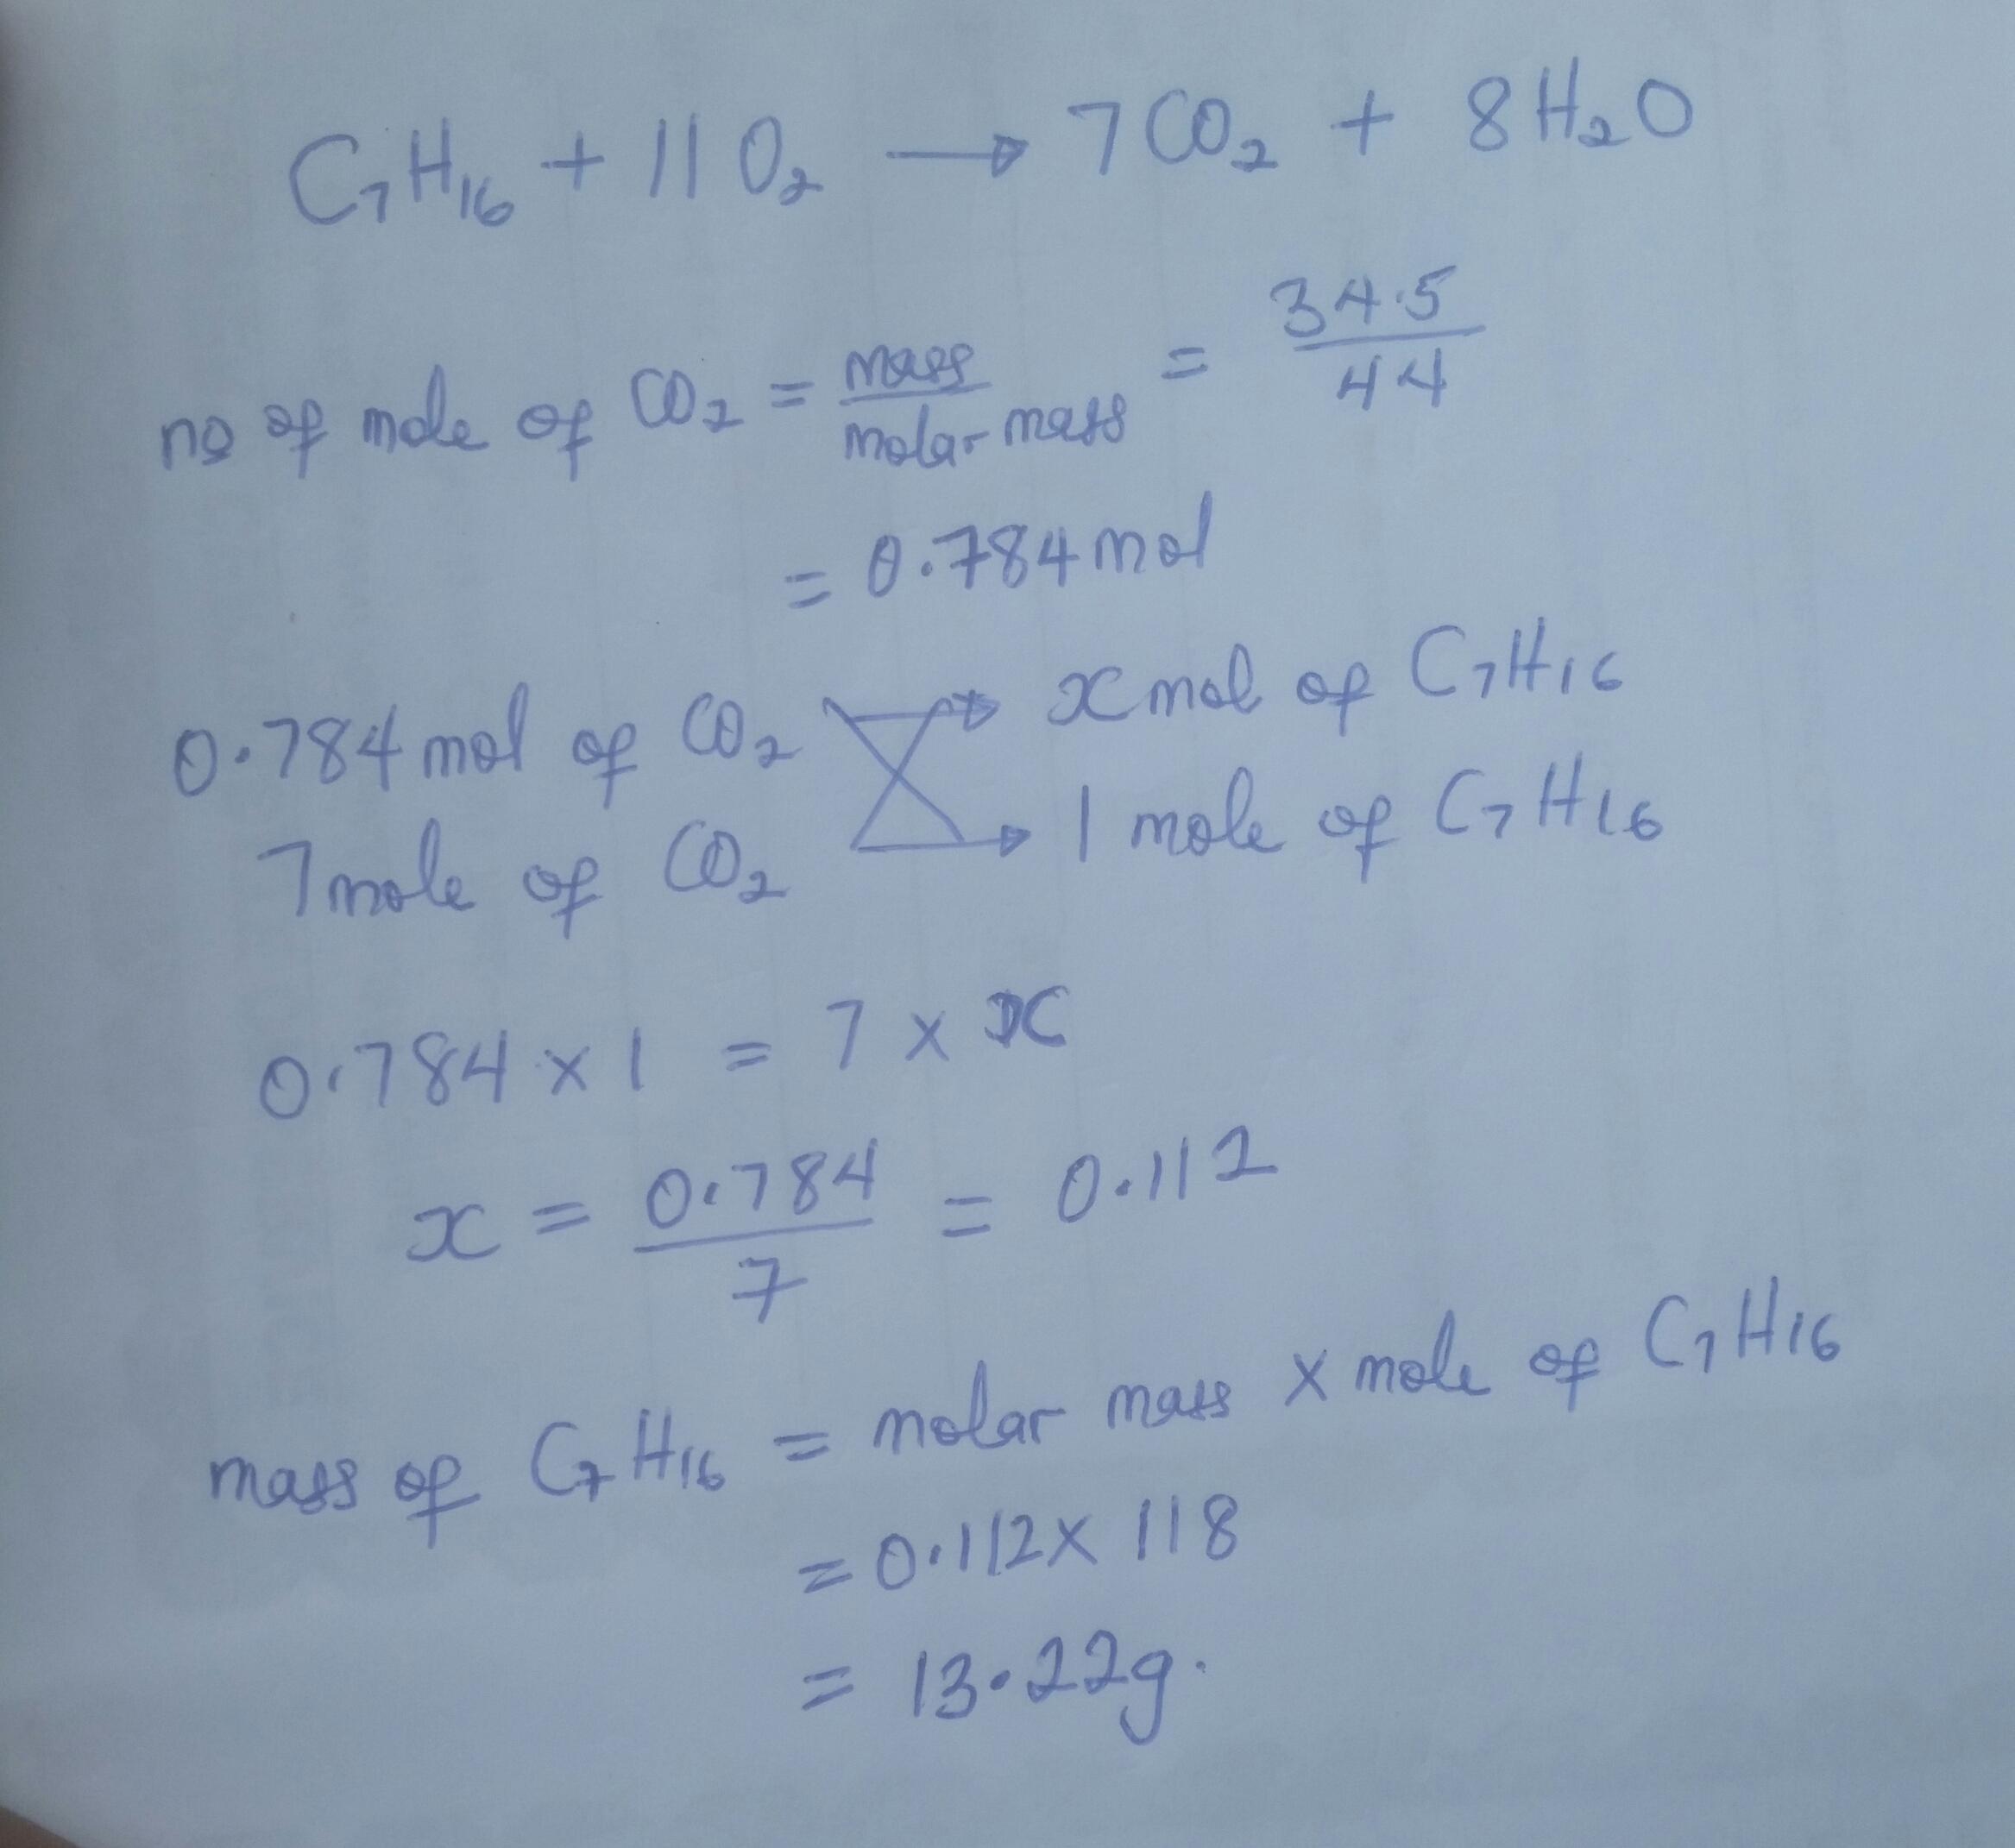 C₇H₁₆ + 11 O₂ → 7 CO₂ + 8 H₂O
no of mole of CO₂ = mass / molar mass = 34.5 / 44
= 0.784 mol
0.784 mol of CO₂ → x mol of C₇H₁₆
7 mole of CO₂ → 1 mole of C₇H₁₆
0.784 × 1 = 7 × x
x = 0.784 / 7 = 0.112
mass of C₇H₁₆ = molar mass × mole of C₇H₁₆
= 0.112 × 118
= 13.22g.